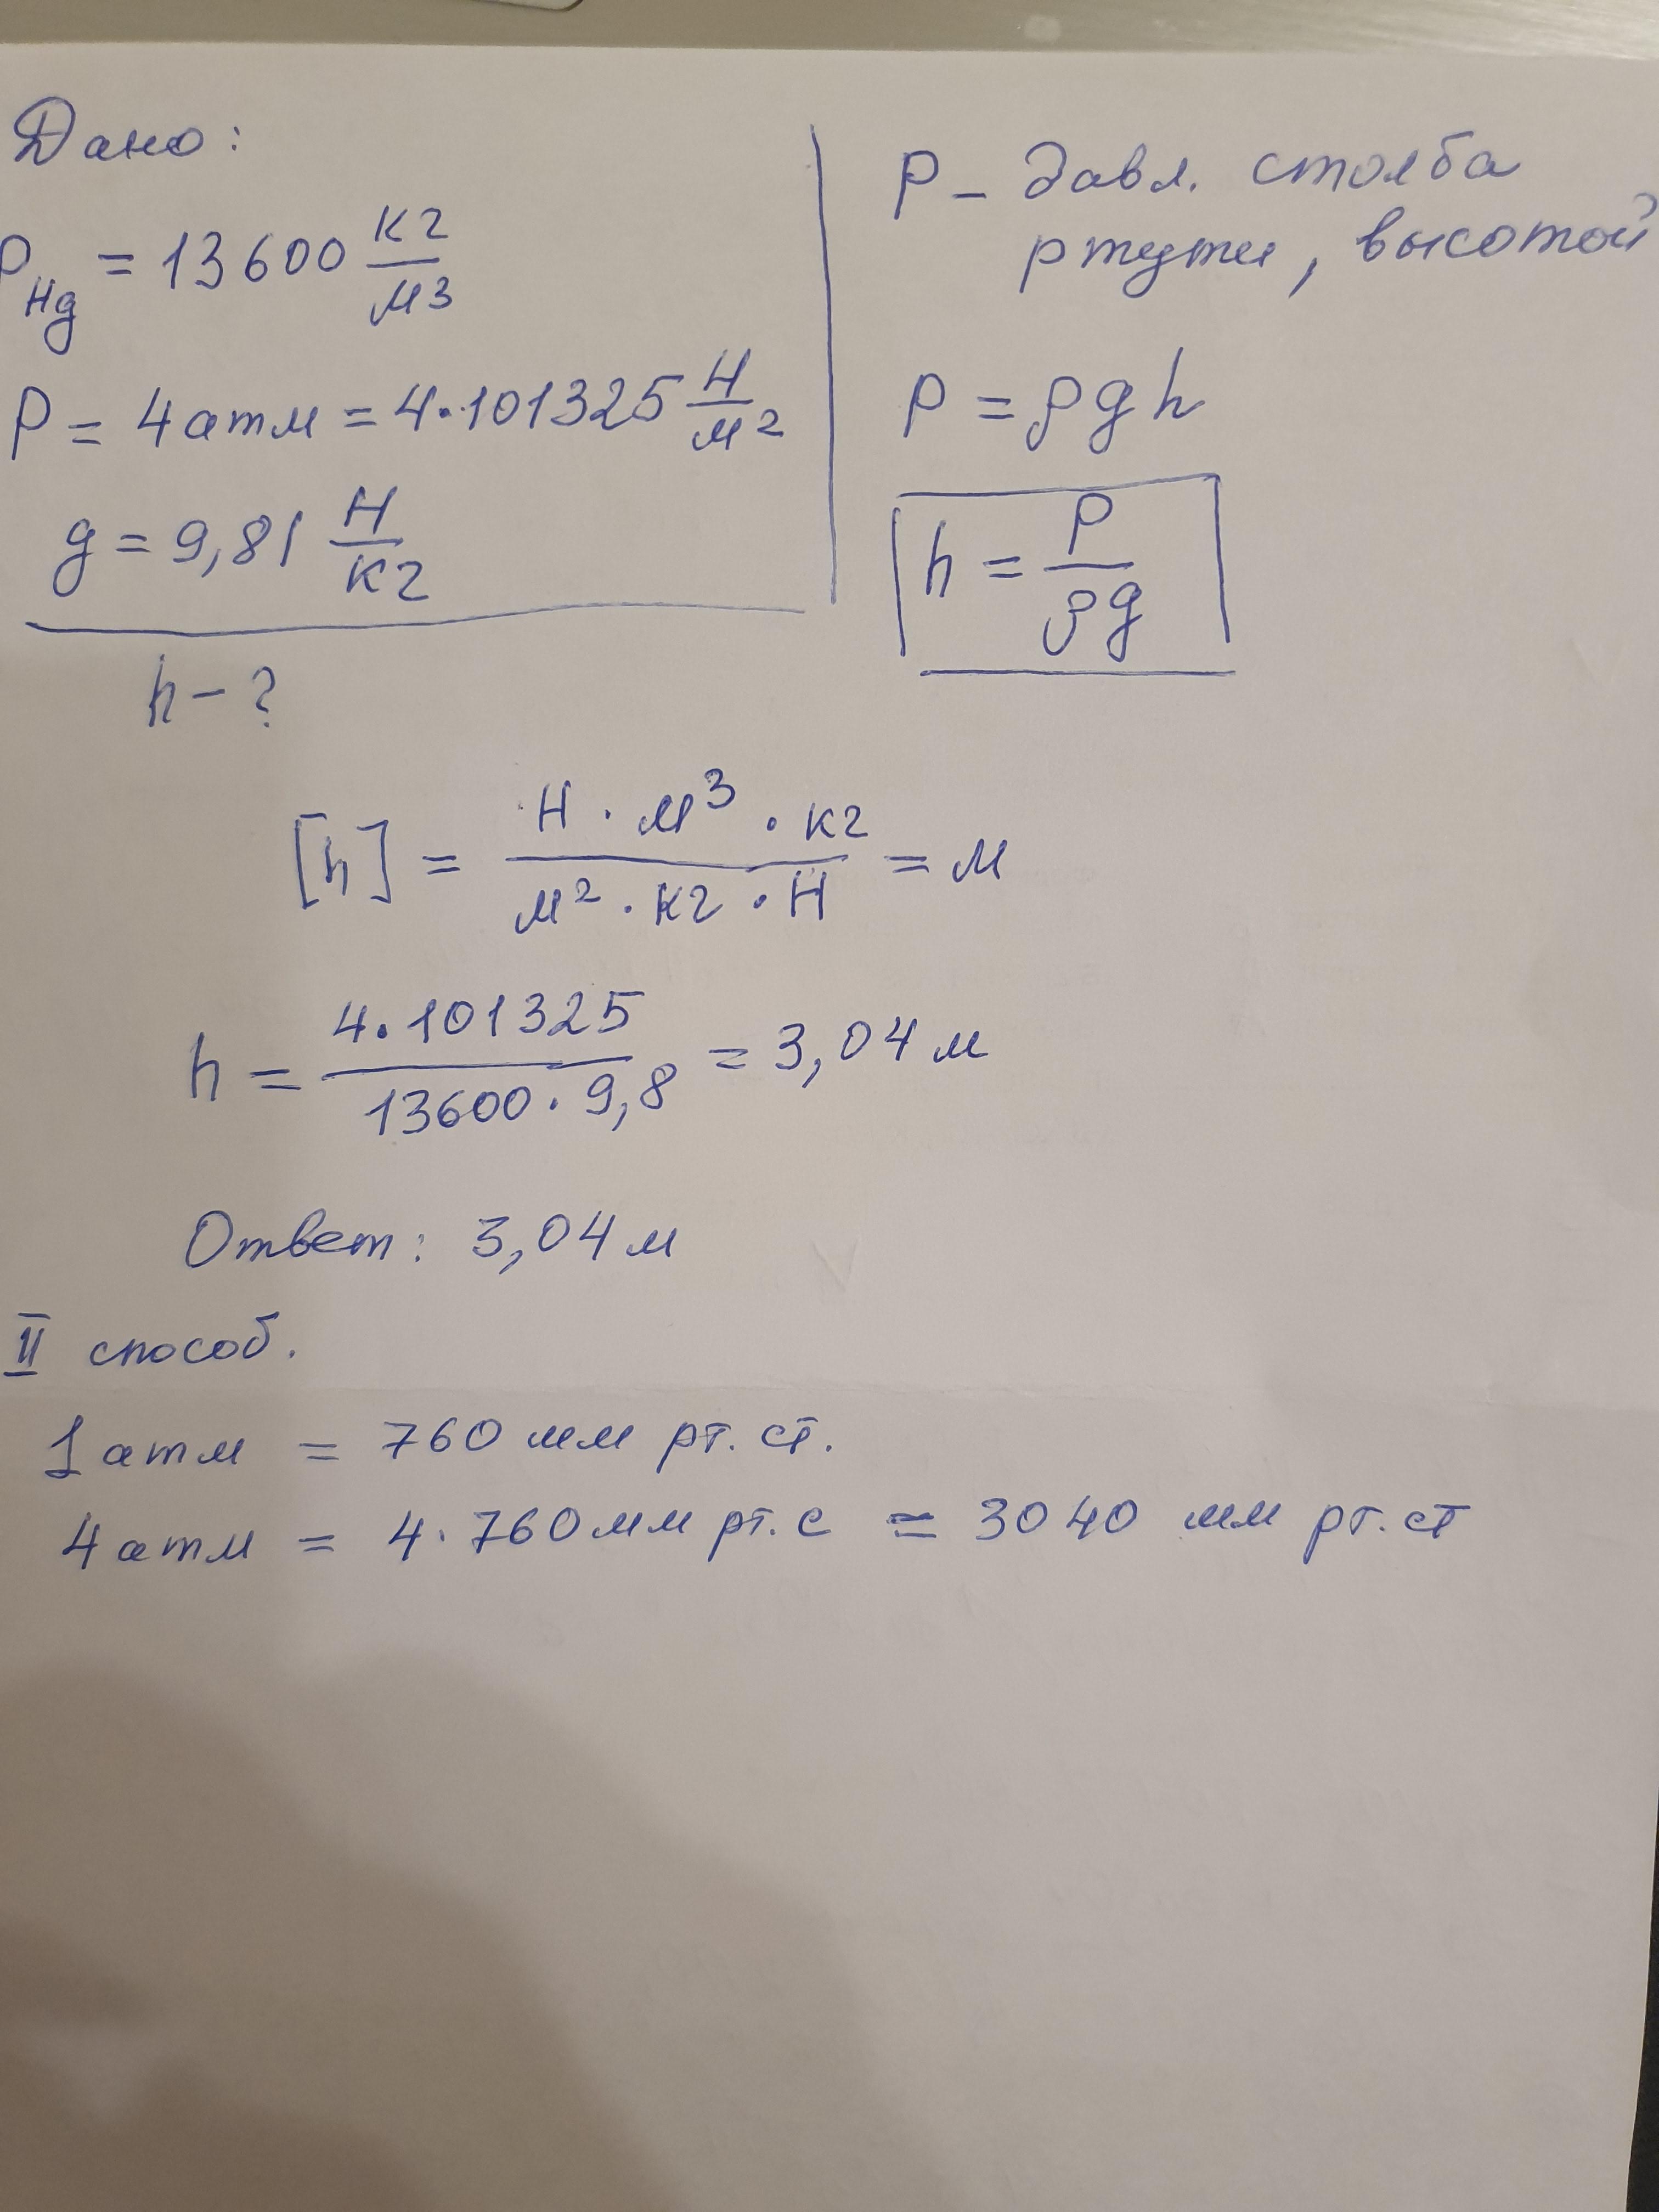 Дано:
ρ_Hg = 13600 кг/м³
P = 4 атм = 4·101325 Н/м²
g = 9,81 Н/кг
h - ?
P - давл. столба
ртути, высотой
P = ρgh
h = P/ρg
[h] = Н · м³ · кг / м² · кг · Н = м
h = 4·101325 / 13600 · 9,8 = 3,04 м
Ответ: 3,04 м
II способ.
1 атм = 760 мм рт. ст.
4 атм = 4 · 760 мм рт. с = 3040 мм рт. ст